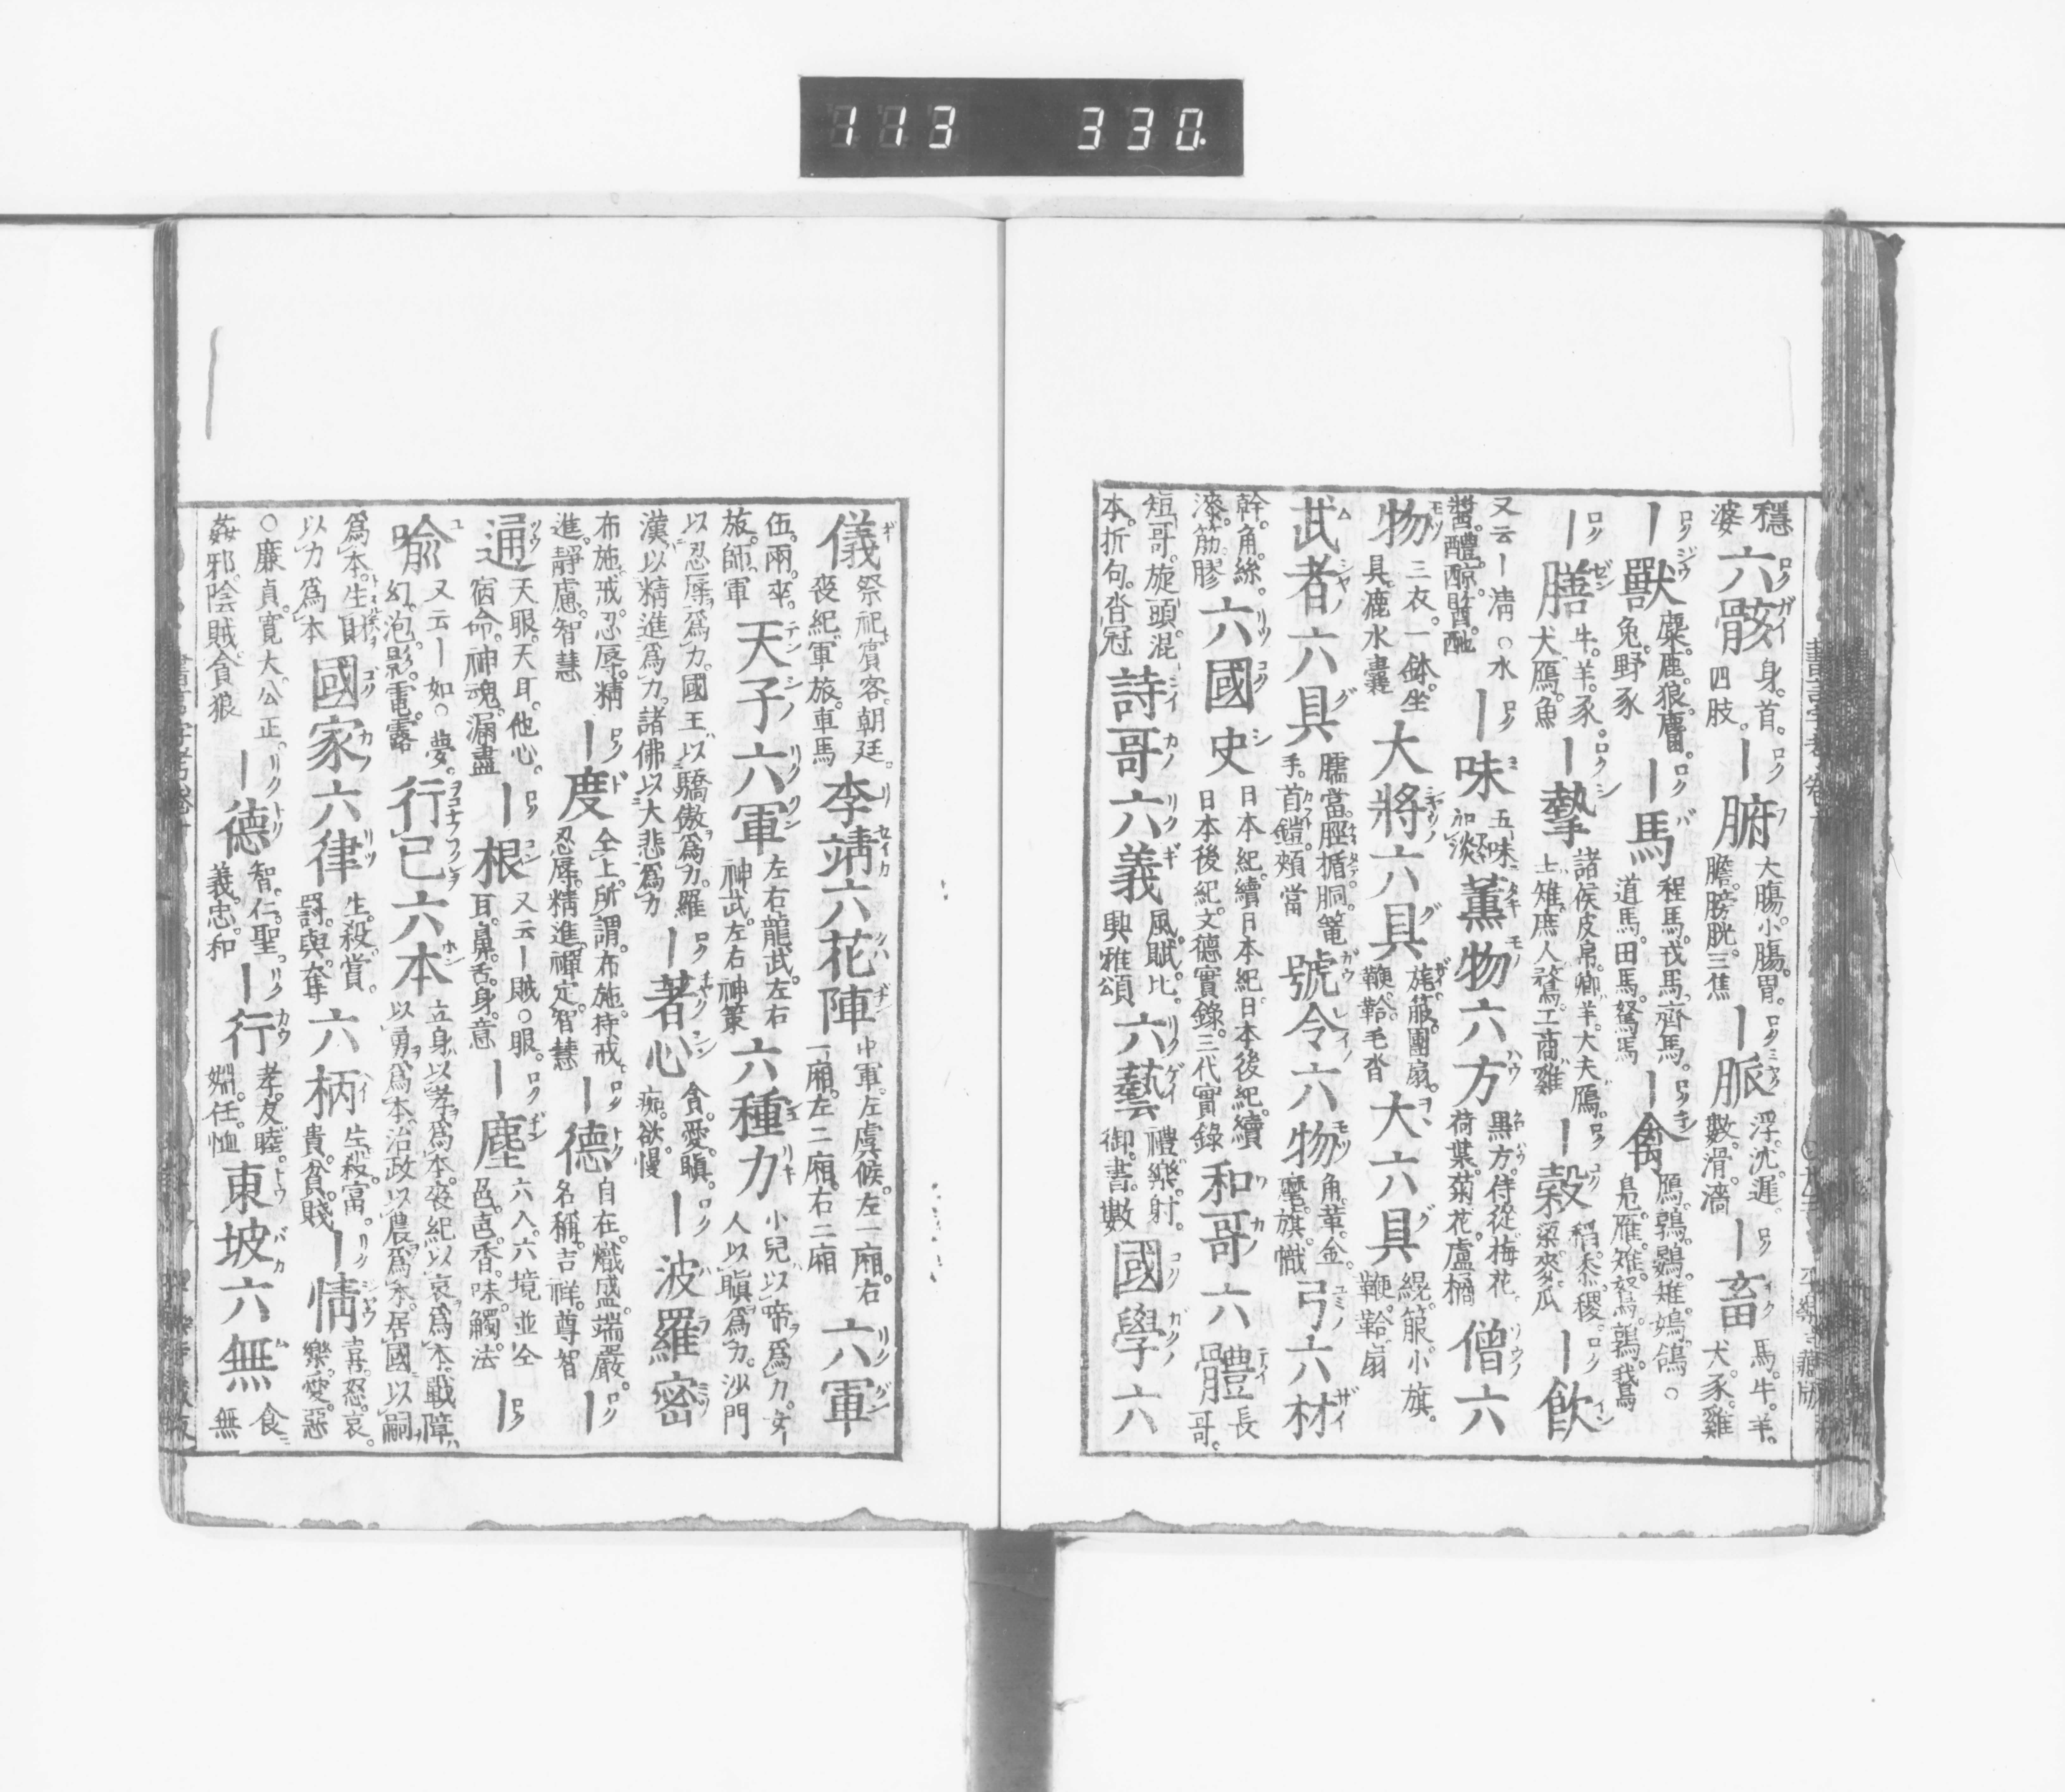 113 330.
穩婆 六骸 身。首。四肢。 ー腑 大腸。小腸。胃。膽。膀胱。三焦 ー脈 浮。沈。遲。數。滑。濇 ー畜 馬。牛。羊。犬。豕。雞
ー獸 麋。鹿。狼。麕。兔。野豕 ー馬 程馬。戎馬。齊馬。道馬。田馬。駑馬 ー禽 鴈。鶉。鷃。雉。鳩。鴿。○
ー膳 牛。羊。豕。犬。鴈。魚 ー摯 諸侯皮帛。卿羊。大夫鴈。士雉。庶人鶩。工商雞 ー穀 稻。黍。稷。粱。麥。瓜 ー飮
又云ー淸○水。醬。醴。醇。醫。酏 ー味 五味加淡 薰物六方 黑方。侍從。梅花。荷葉。菊花。盧橘 僧六
物 三衣。一鉢。坐具。鹿水囊 大將六具 團扇。鞭。鞈。毛沓 大六具 小旗。鞭。鞈。扇
武者六具 臑當。脛楯。胴。籠手。首鎧。頰當 號令六物 角。革。金。麾。旗。幟 弓六材
幹。角。絲。漆。筋。膠 六國史 日本紀。續日本紀。日本後紀。續日本後紀。文德實錄。三代實錄 和哥六體 長哥。
短哥。旋頭。混本。折句。沓冠 詩哥六義 風。賦。比。興。雅。頌 六藝 禮。樂。射。御。書。數 國學六
儀 祭祀。賓客。朝廷。喪紀。軍旅。車馬 李靖六花陣 中軍。左虞候。左一廂。右一廂。左二廂。右二廂 六軍
伍。兩。卒。旅。師。軍 天子六軍 左右龍武。左右神武。左右神策 六種力 小兒以啼爲力。女人以瞋爲力。沙門
以忍辱爲力。國王以驕傲爲力。羅漢以精進爲力。諸佛以大悲爲力 ー著心 貪。愛。瞋。痴。欲。慢 ー波羅密
布施。戒。忍辱。精進。靜慮。智慧 ー度 仝上。所謂布施。持戒。忍辱。精進。禪定。智慧 ー德 自在。熾盛。端嚴。名稱。吉祥。尊智 ー
通 天眼。天耳。他心。宿命。神魂。漏盡 ー根 又云ー賊○眼。耳。鼻。舌。身。意 ー塵 六入。六境並仝 色。音。香。味。觸。法 ー
喩 又云ー如○夢。幻。泡。影。電。露 行己六本 立身以孝爲本。喪紀以哀爲本。戰陣以勇爲本。治政以農爲本。居國以嗣
爲本。生財以力爲本 國家六律 生。殺。賞。罸。與。奪 六柄 生。殺。富。貴。貧。賤 ー情 喜。怒。哀。樂。愛。惡
○廉貞。寬大。公正。姦邪。陰賊。貪狼 ー德 智。仁。聖。義。忠。和 ー行 孝。友。睦。婣。任。恤 東坡六無 食無